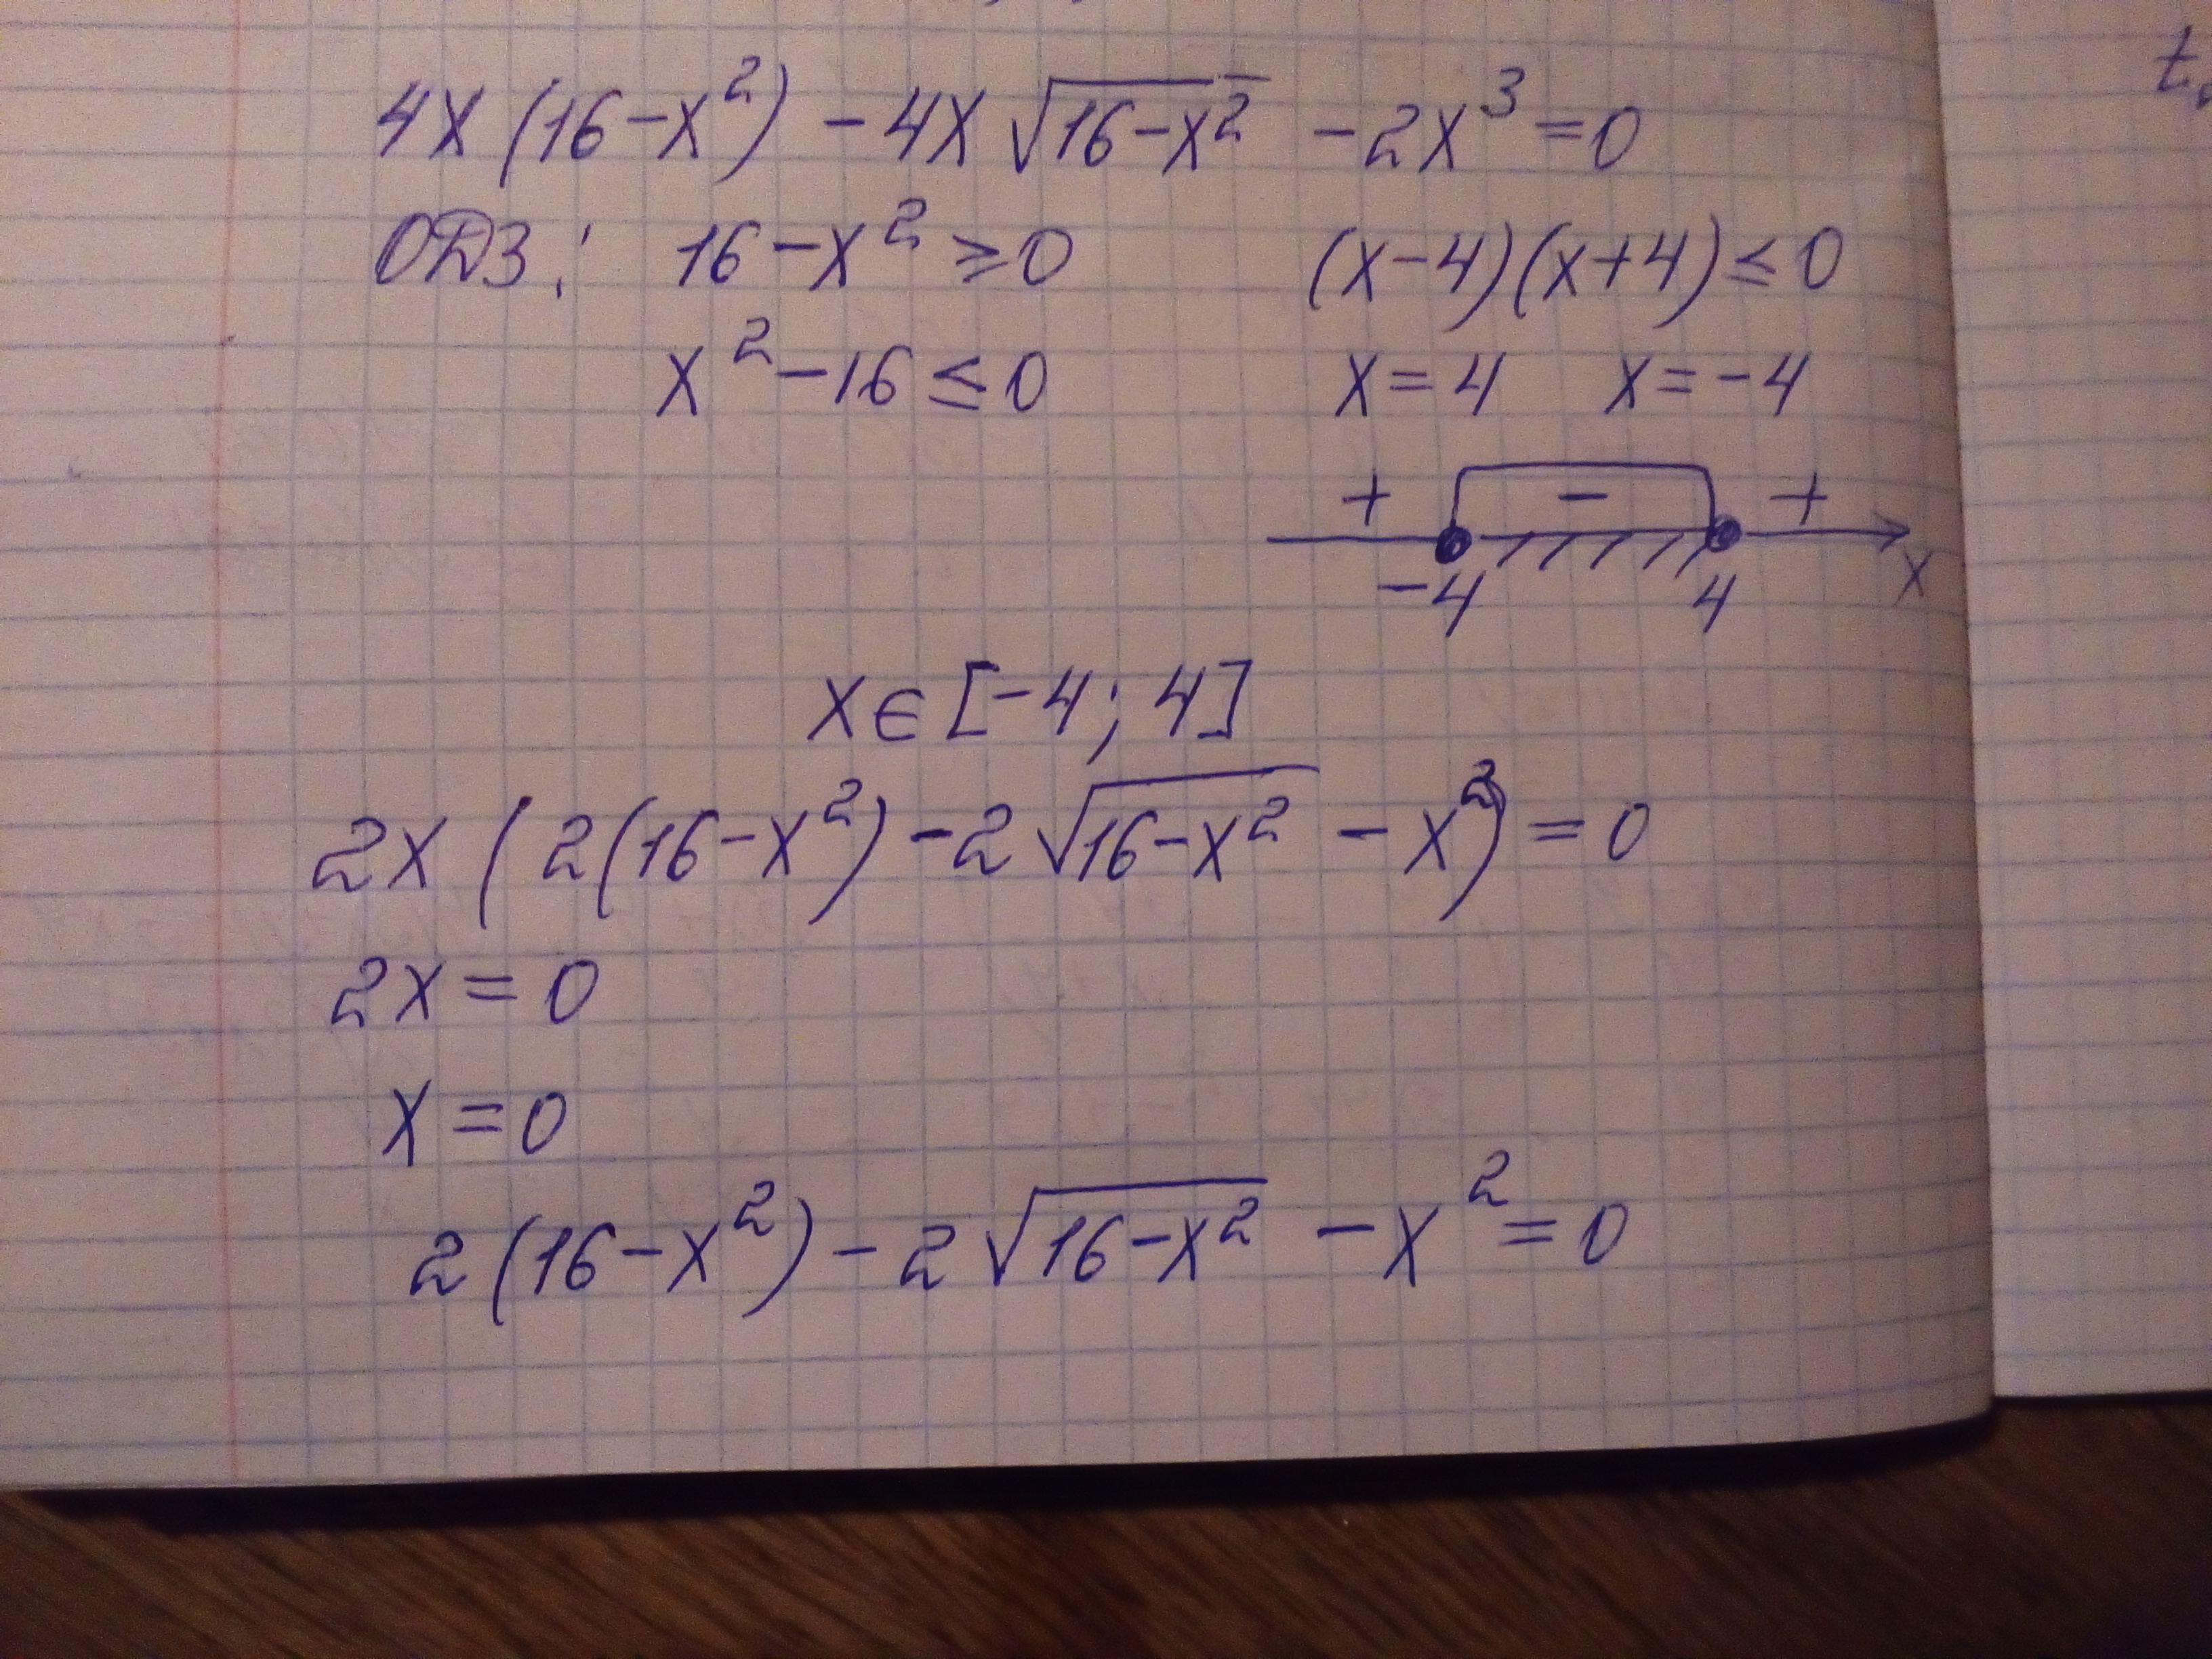 4x(16-x²) - 4x√(16-x²) - 2x³ = 0
ОДЗ: 16-x² ≥ 0 (x-4)(x+4) ≤ 0
x²-16 ≤ 0 x = 4 x = -4
+ - +
-4 4 x
x ∈ [-4; 4]
2x(2(16-x²) - 2√(16-x²) - x²) = 0
2x = 0
x = 0
2(16-x²) - 2√(16-x²) - x² = 0